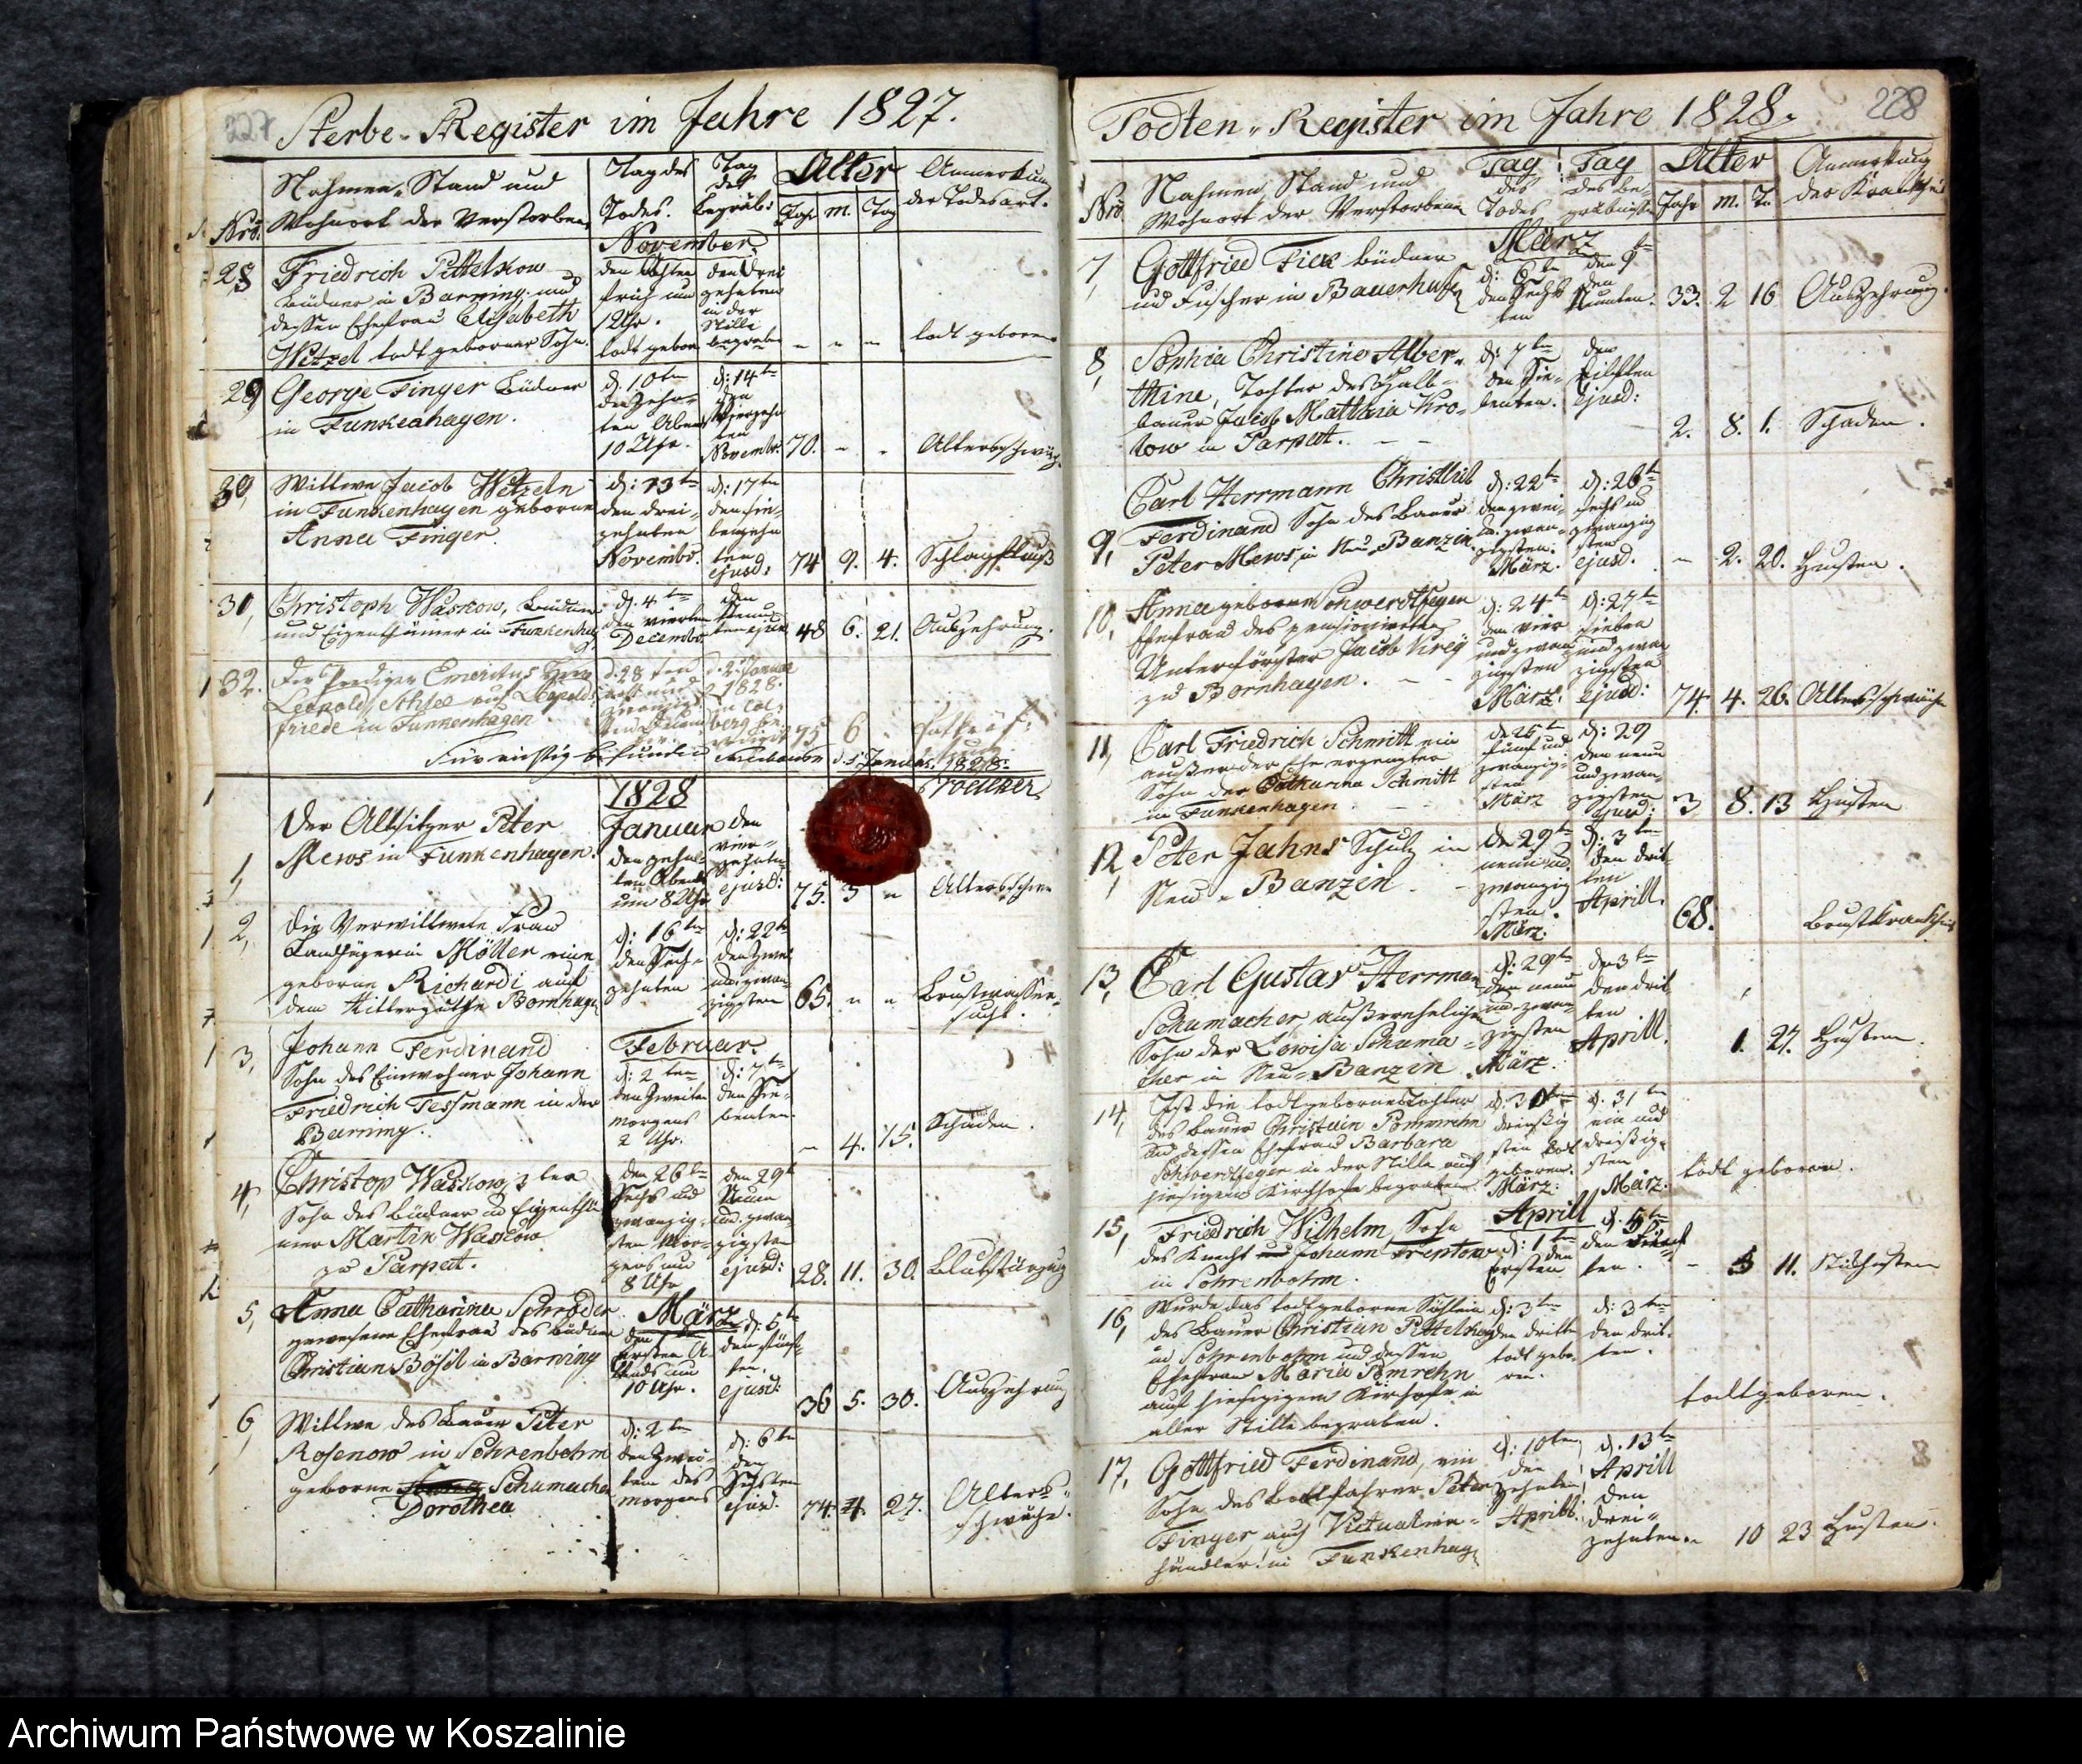 227
Sterbe-Register im Jahre 1827.
Nro. Nahmen, Stand und Wohnort der Verstorben.
Tag des Todes.
Tag des Begräb:
Alter
Jahr M. Tag
Anmerkung der Todesart.
November.
28, Friedrich Pittelkow
Büdner in Barning und
dessen Ehefrau Elisabeth
Witzel todt geborner Sohn.
früh um
1 Uhr.
todt gebor
den drei
zehnten
in der
Stille
begrabe
- - - todt geboren
29, George Finger Büdner
in Funkenhagen.
d. 10ten
den Zehn-
ten Abends
10 Uhr.
d: 14ten
den
Vierzehn
ten
Novembr.
70. - - Altersschwäch
30, Wittwe Jacob Witzeln
in Funkenhagen geborne
Anna Finger
d: 13ten
den drei-
zehnten
Novembr.
d: 17ten
den sie-
benzehn
ten
ejusd:
74 9. 4. Schlagfluß
31, Christoph Waskow, Büdner
und Eigenthümer in Funkenhag
d. 4ten
den vierten
Decembr
den
Neun
ten ejusd
48 6. 21. Auszehrung.
32. Der Prediger Emeritus
Leopold auf Leopolds
friede in Funkenhagen
d. 28ten
d. 2. Januar
1828.
in Col-
berg be-
erdigt
75 6
Für richtig befunden Januar 1828.
1828
Januar
1, Der Altsitzer Peter
Mews in Funkenhagen.
den zehn-
ten Abends
um 8 Uhr
den
vier-
zehnten
ejusd:
75. 3 - Altersschw
2, die Verwittwete Frau
Landjägerin Möller eine
geborne Richardi auf
dem Ritterguthe Bornhag
d: 16ten
den Sech-
zehnten
d: 22ten
den Zwei
und zwan-
zigsten
65. - - Brustwasser-
sucht.
Februar.
3, Johann Ferdinand
Sohn des Einwohner Johann
Friedrich Tessmann in der
Barning.
d: 2ten
den Zweiten
morgens
2 Uhr.
d: 7ten
den Sie-
benten
- 4. 15. Schaden.
4, Christop Waskow, 3ter
Sohn des Büdner u Eigenthü
mer Martin Waskow
zu Parpat.
den 26ten
Sechs und
zwanzig-
sten Mor-
gens um
8 Uhr
den 29t
Neun
und zwan-
zigsten
ejusd:
28. 11. 30. Blutstürzug
März
5, Anna Catharina Schröder
gewesene Ehefrau des Büdner
Christian Böß in Barning
den 1ten
ersten A-
bends um
10 Uhr.
d: 5ten
den fünf-
ten.
ejusd:
36 5. 30. Auszehrung
6, Wittwe des Bauer Peter
Rosenow in Sohrenbohm
geborne Schumacher
Dorothea
d: 2ten
den Zwei-
ten des
morgens
d: 6ten
den
Sechsten
ejusd.
74. 4. 27. Alters-
schwäche.
228
Todten-Register im Jahre 1828.
Nro Nahmen, Stand und
Wohnort der Verstorbenen
Tag des Todes
Tag des Be-
gräbniß
Alter
Jahr M. T.
Anmerkung
der Krankheit
März
7, Gottfried Fick Büdner
und Fuscher in Bauerhufen
d: 6ten
den Sechs
ten
den 9ten
den
Neunten.
33. 2 16 Auszehrung.
8, Sophia Christine Alber-
thine, Tochter des Halb-
bauer Jacob Mathaia Kro-
kow in Parpat. - -
d: 7ten
den Sie-
benten.
den
Eilften
ejusd:
2. 8. 1. Schaden.
9, Carl Herrmann Christlieb
Ferdinand Sohn des Bauer
Peter Mews in Neu-Banzin
d: 22ten
den zwei-
und zwan-
zigsten.
März.
d: 26ten
sechs und
zwanzig
sten
ejusd.
- 2. 20. Husten.
10, Anna geborne Schwerdtfeger
Ehefrau des pensionierten
Unterförster Jacob Virey
zu Bornhagen. - -
d: 24ten
den vier
und zwan
zigsten
März.
d: 27ten
sieben
und zwan-
zigsten
ejusd:
74. 4. 26. Altersschwäche
11, Carl Friedrich Schmitt ein
außer der Ehe erzeugter
Sohn der Catharina Schmitt
in Funkenhagen. - -
d. 25ten
fünf und
zwanzig-
sten
März
d: 29
den neun
und zwan-
zigsten
ejusd:
3 8. 13 Husten
12, Peter Jahns Schulz in
Neu-Banzin. - -
d. 29ten
neun und
zwanzig
sten.
März.
d: 3ten
den drit
ten
Aprill.
68. Brustkrankheit
13, Carl Gustav Herrman
Schumacher außereheliche
Sohn der Lowisa Schuma-
cher in Neu-Banzin
d: 29ten
den neun
und zwan-
zigsten
März.
d. 3ten
den drit-
ten
Aprill.
1. 27. Husten.
14, Ist die todtgeborne Tochter
des Bauer Christian Pommrehn
und dessen Ehefrau Barbara
Schwerdtfeger in der Stille auf
hiesigen Kirchhofe begraben
d. 30ten
dreißig
sten todt
geboren.
März.
d. 31ten
ein und
dreißig-
sten
März.
todt geboren.
Aprill
15, Friedrich Wilhelm, Sohn
des Knecht Johann Treptow
in Sohrenbohm.
d: 1ten
den
Ersten
d. 5ten
den Fünf
ten.
- 3 11. Stickhusten
16, Wurde das todtgeborne Söhlein
des Bauer Christian Pittelkow
in Sohrenbohm und dessen
Ehefrau Maria Pomrehn
auf hiesigigem Kirchofe in
aller Stille begraben.
d: 3ten
den dritte
todt gebo-
ren.
d: 3ten
den drit-
ten.
todtgeboren.
17, Gottfried Ferdinand, ein
Sohn des Bottfahrer Peter
Finger auch Victualien-
händler in Funkenhag
d: 10ten
den
zehnten
Aprill.
d. 13ten
Aprill
den
drei-
zehnten.
- 10 23 Husten.
Archiwum Państwowe w Koszalinie